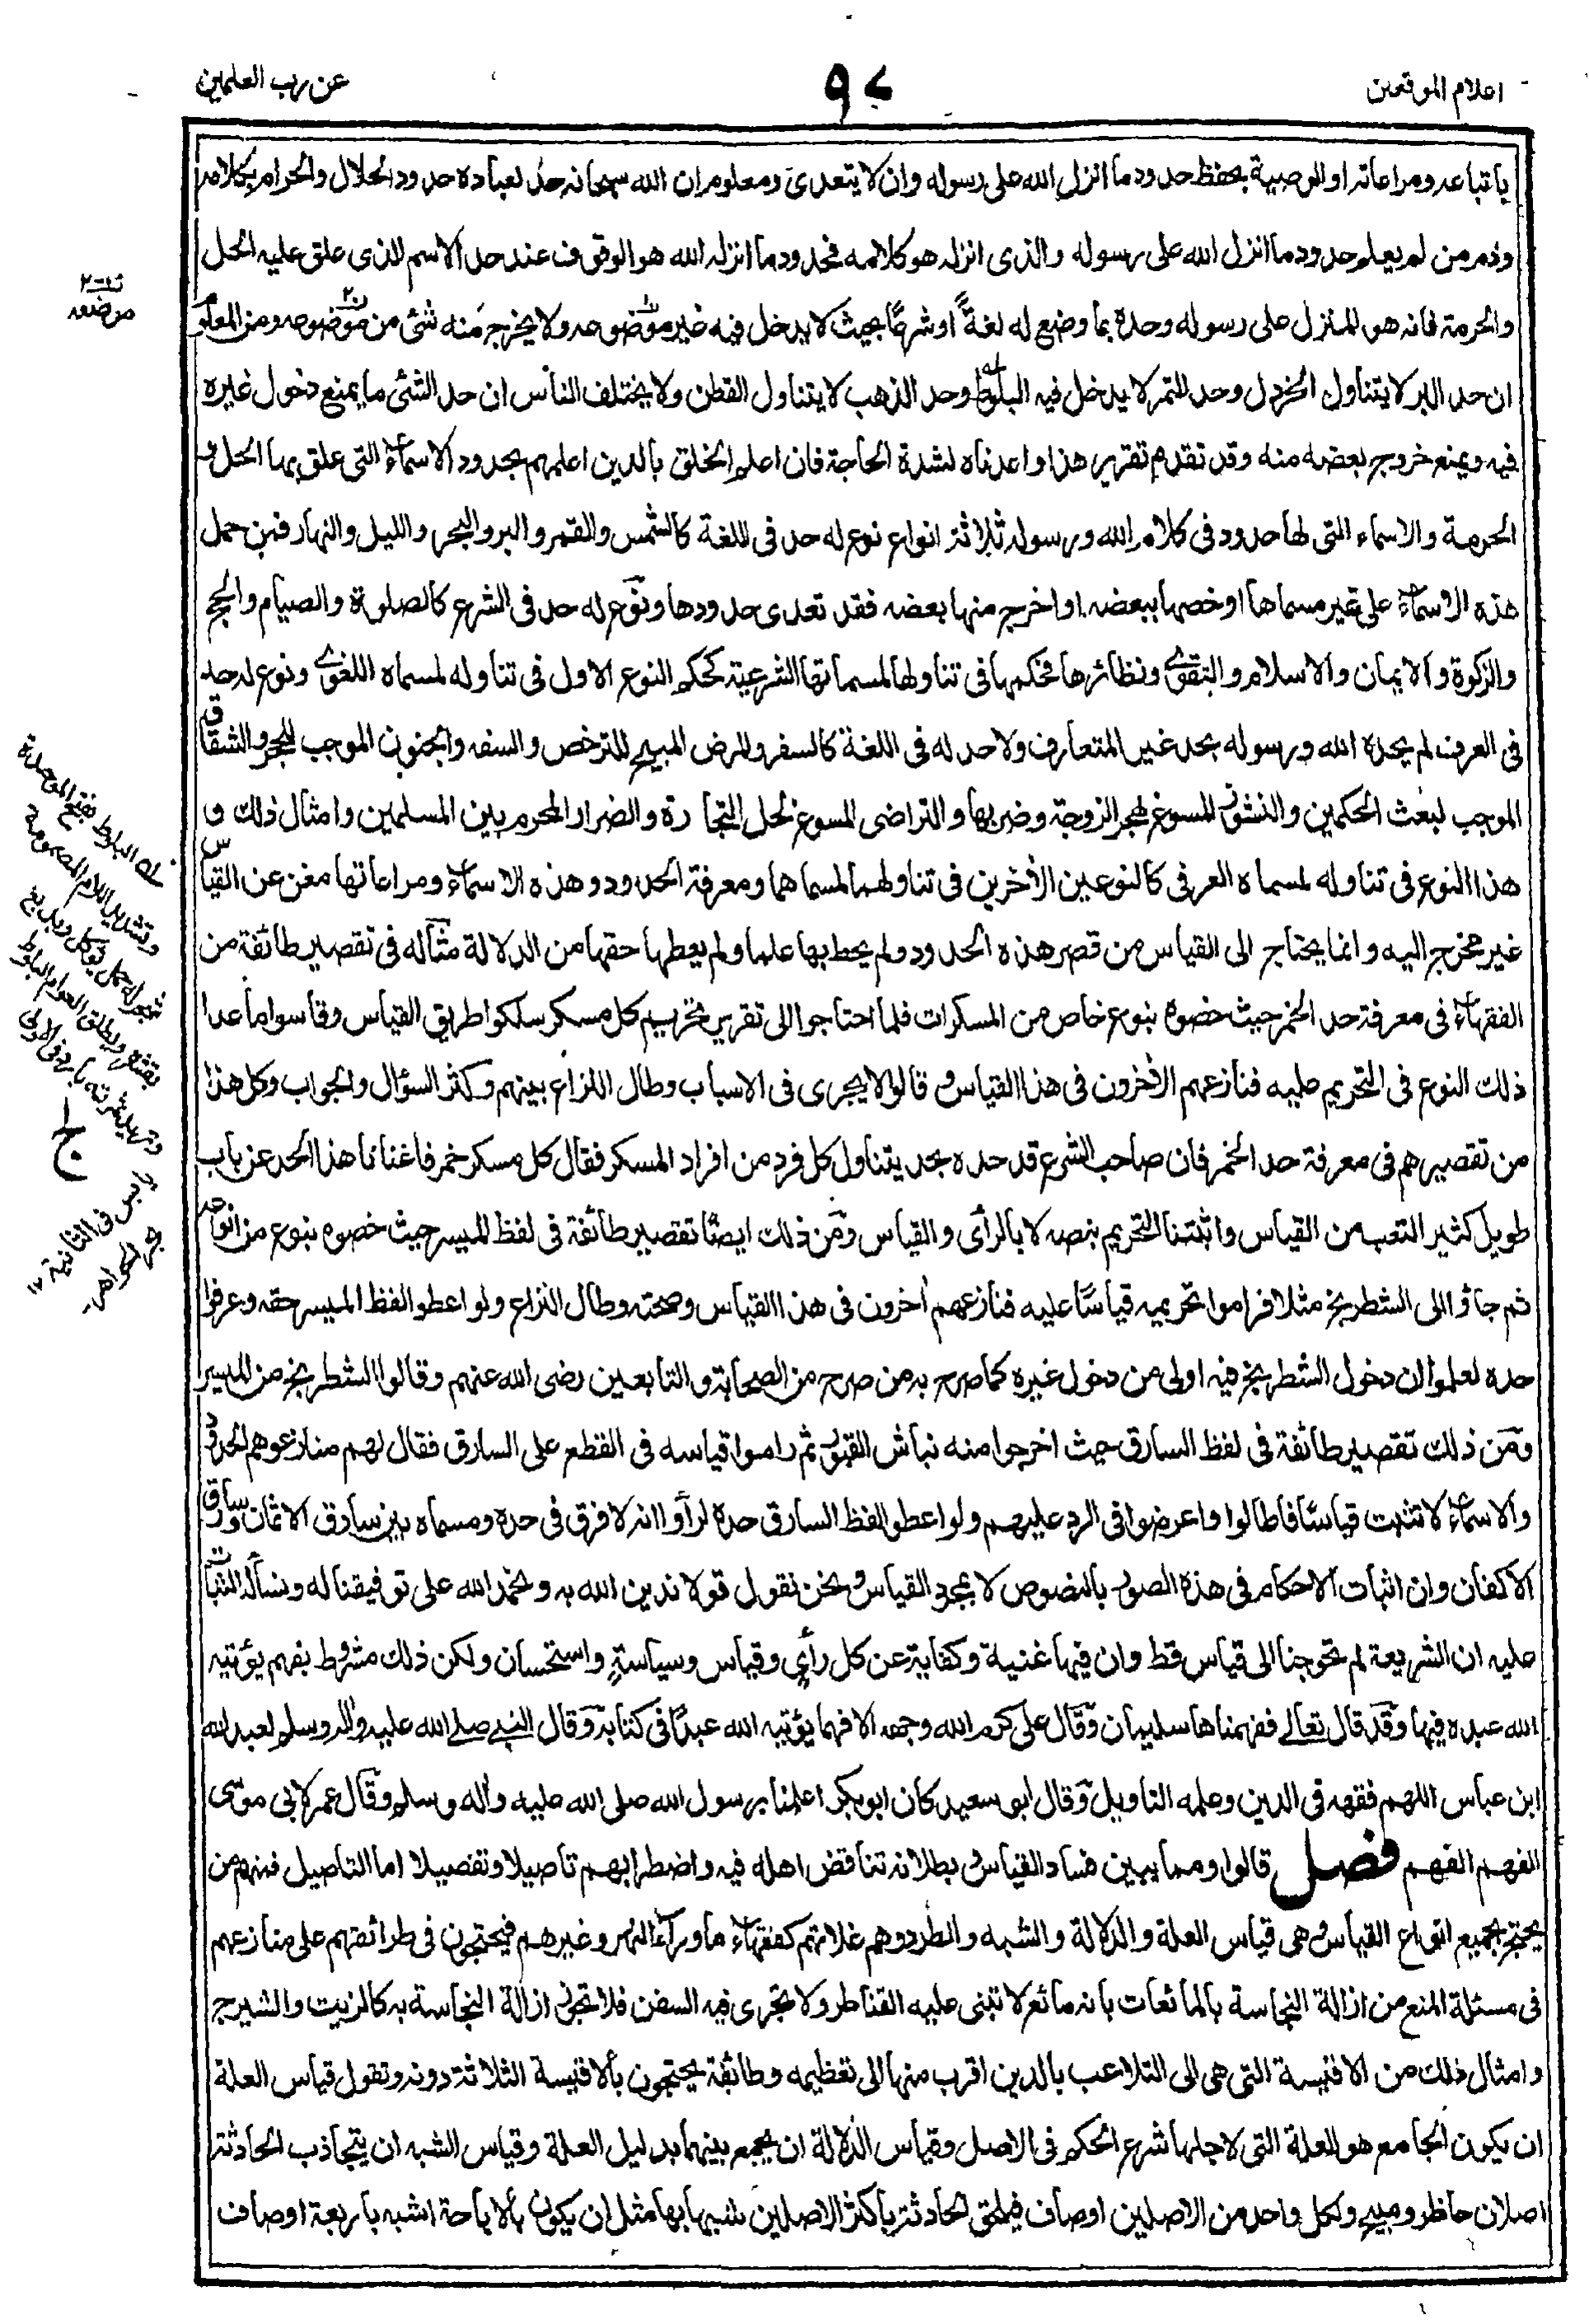 اعلام الموقعين
٩٧
عن رب العلمين
باتباعه ومراعاته او الوصية بحفظ حدود ما انزل الله على رسوله وان لا يتعدى ومعلوم ان الله سبحانه حد لعباده حدود الحلال والحرام بكلامه
وذم من لم يعلم حدود ما انزل الله على رسوله والذى انزله هو كلامه فحدود ما انزله الله هو الوقوف عند حد الاسم الذى علق عليه الحل
والحرمة فانه هو المنزل على رسوله وحده بما وضع له لغةً او شرعًا بحيث لا يدخل فيه غير موضوعه ولا يخرج منه شئى من موضوعه ومن المعلوم
ان حد البر لا يتناول الخردل وحد التمر لا يدخل فيه البلوط وحد الذهب لا يتناول القطن ولا يختلف الناس ان حد الشئى ما يمنع دخول غيره
فيه ويمنع خروج بعضه منه وقد تقدم تقرير هذا واعدناه لشدة الحاجة فان اعلم الخلق بالدين اعلمهم بحدود الاسماء التى علق بها الحل و
الحرمة والاسماء التى لها حدود فى كلام الله ورسوله ثلاثة انواع نوع له حد فى اللغة كالشمس والقمر والبر والبحر والليل والنهار فمن حمل
هذه الاسماء على غير مسماها او خصها ببعضه او اخرج منها بعضه فقد تعدى حدودها ونوع له حد فى الشرع كالصلوة والصيام والحج
والزكوة والايمان والاسلام والتقوى ونظائرها فحكمها فى تناولها لمسمياتها الشرعية كحكم النوع الاول فى تناوله لمسماه اللغوى ونوع له حد
فى العرف لم يحده الله ورسوله بحد غير المتعارف ولا حد له فى اللغة كالسفر والمرض المبيح للترخص والسفه والجنون الموجب للحجر والشقاق
الموجب لبعث الحكمين والنشوز المسوغ لهجر الزوجة وضربها والتراضى المسوغ لحل التجارة والضرار المحرم بين المسلمين وامثال ذلك و
هذا النوع فى تناوله لمسماه العرفى كالنوعين الأخرين فى تناولهما لمسماهما ومعرفة الحدود وهذه الاسماء ومراعاتها مغن عن القياس
غير محوج اليه وانما يحتاج الى القياس من قصر هذه الحدود ولم يحط بها علما ولم يعطها حقها من الدلالة مثاله فى تقصير طائفة من
الفقهاء فى معرفة حد الخمر حيث خصوه بنوع خاص من المسكرات فلما احتاجوا الى تقرير تحريم كل مسكر سلكوا طريق القياس وقاسوا ما عدا
ذلك النوع فى التحريم عليه فنازعهم الأخرون فى هذا القياس و قالوا لا يجرى فى الاسباب وطال النزاع بينهم وكثر السؤال والجواب وكل هذا
من تقصيرهم فى معرفة حد الخمر فان صاحب الشرع قد حده بحد يتناول كل فرد من افراد المسكر فقال كل مسكر خمر فاغنانا هذا الحد عن باب
طويل كثير التعب من القياس واثبتنا التحريم بنصه لا بالرأى والقياس ومن ذلك ايضًا تقصير طائفة فى لفظ الميسر حيث خصوه بنوع من انواعه
ثم جاؤا الى الشطرنج مثلا فراموا تحريمه قياسًا عليه فنازعهم أخرون فى هذا القياس وصحته وطال النزاع ولو اعطوا لفظ الميسر حقه وعرفوا
حده لعلموا ان دخول الشطرنج فيه اولى من دخول غيره كما صرح به من صرح من الصحابة والتابعين رضى الله عنهم وقالوا الشطرنج من الميسر
ومن ذلك تقصير طائفة فى لفظ السارق حيث اخرجوا منه نباش القبور ثم راموا قياسه فى القطع على السارق فقال لهم منازعوهم الحدود
والاسماء لا تثبت قياسًا فاطالوا واعرضوا فى الرد عليهم ولو اعطوا لفظ السارق حده لرأوا انه لا فرق فى حده ومسماه بين سارق الاثمان وسارق
الاكفان وان اثبات الاحكام فى هذه الصور بالنصوص لا بمجرد القياس و نحن نقول قولا ندين الله به ونحمد الله على توفيقنا له ونسأله الثبات
عليه ان الشريعة لم تحوجنا الى قياس قط وان فيها غنية وكفاية عن كل رأي وقياس وسياسةٍ واستحسان ولكن ذلك مشروط بفهم يؤتيه
الله عبده فيها وقد قال تعالى ففهمناها سليمان وقال على كرم الله وجهه الا فهما يؤتيه الله عبدًا فى كتابه وقال النبى صلى الله عليه واله وسلم لعبد الله
ابن عباس اللهم فقهه فى الدين وعلمه التاويل وقال ابو سعيد كان ابوبكر اعلمنا برسول الله صلى الله عليه وأله وسلم وقال عمر لابى موسى
الفهم الفهم فصل قالوا ومما يبين فساد القياس و بطلانه تناقض اهله فيه واضطرابهم تاصيلا وتفصيلا اما التاصيل فمنهم من
يحتج بجميع انواع القياس و هى قياس العلة والدلالة والشبه والطرد وهم غلاتهم كفقهاء ما وراء النهر وغيرهم فيحتجون فى طرائقهم على منازعهم
فى مسئلة المنع من ازالة النجاسة بالمائعات بانه مائع لا تبنى عليه القناطر ولا تجرى فيه السفن فلا تجوز ازالة النجاسة به كالزيت والشيرج
وامثال ذلك من الاقيسة التى هى الى التلاعب بالدين اقرب منها الى تعظيمه وطائفة يحتجون بالاقيسة الثلاثة دونه وتقول قياس العلة
ان يكون الجامع هو العلة التى لاجلها شرع الحكم فى الاصل وقياس الدلالة ان يجمع بينهما بدليل العلة وقياس الشبه ان يتجاذب الحادثة
اصلان حاظر ومبيح ولكل واحد من الاصلين اوصاف فيلحق الحادثة باكثر الاصلين شبها بها مثل ان يكون بالاباحة اشبه باربعة اوصاف
موضعه
له البلوط بفتح الموحدة
وتشديد اللام المضمومة
شجر له حمل يؤكل ويدبغ
بقشره ويطلق العوام البلوط